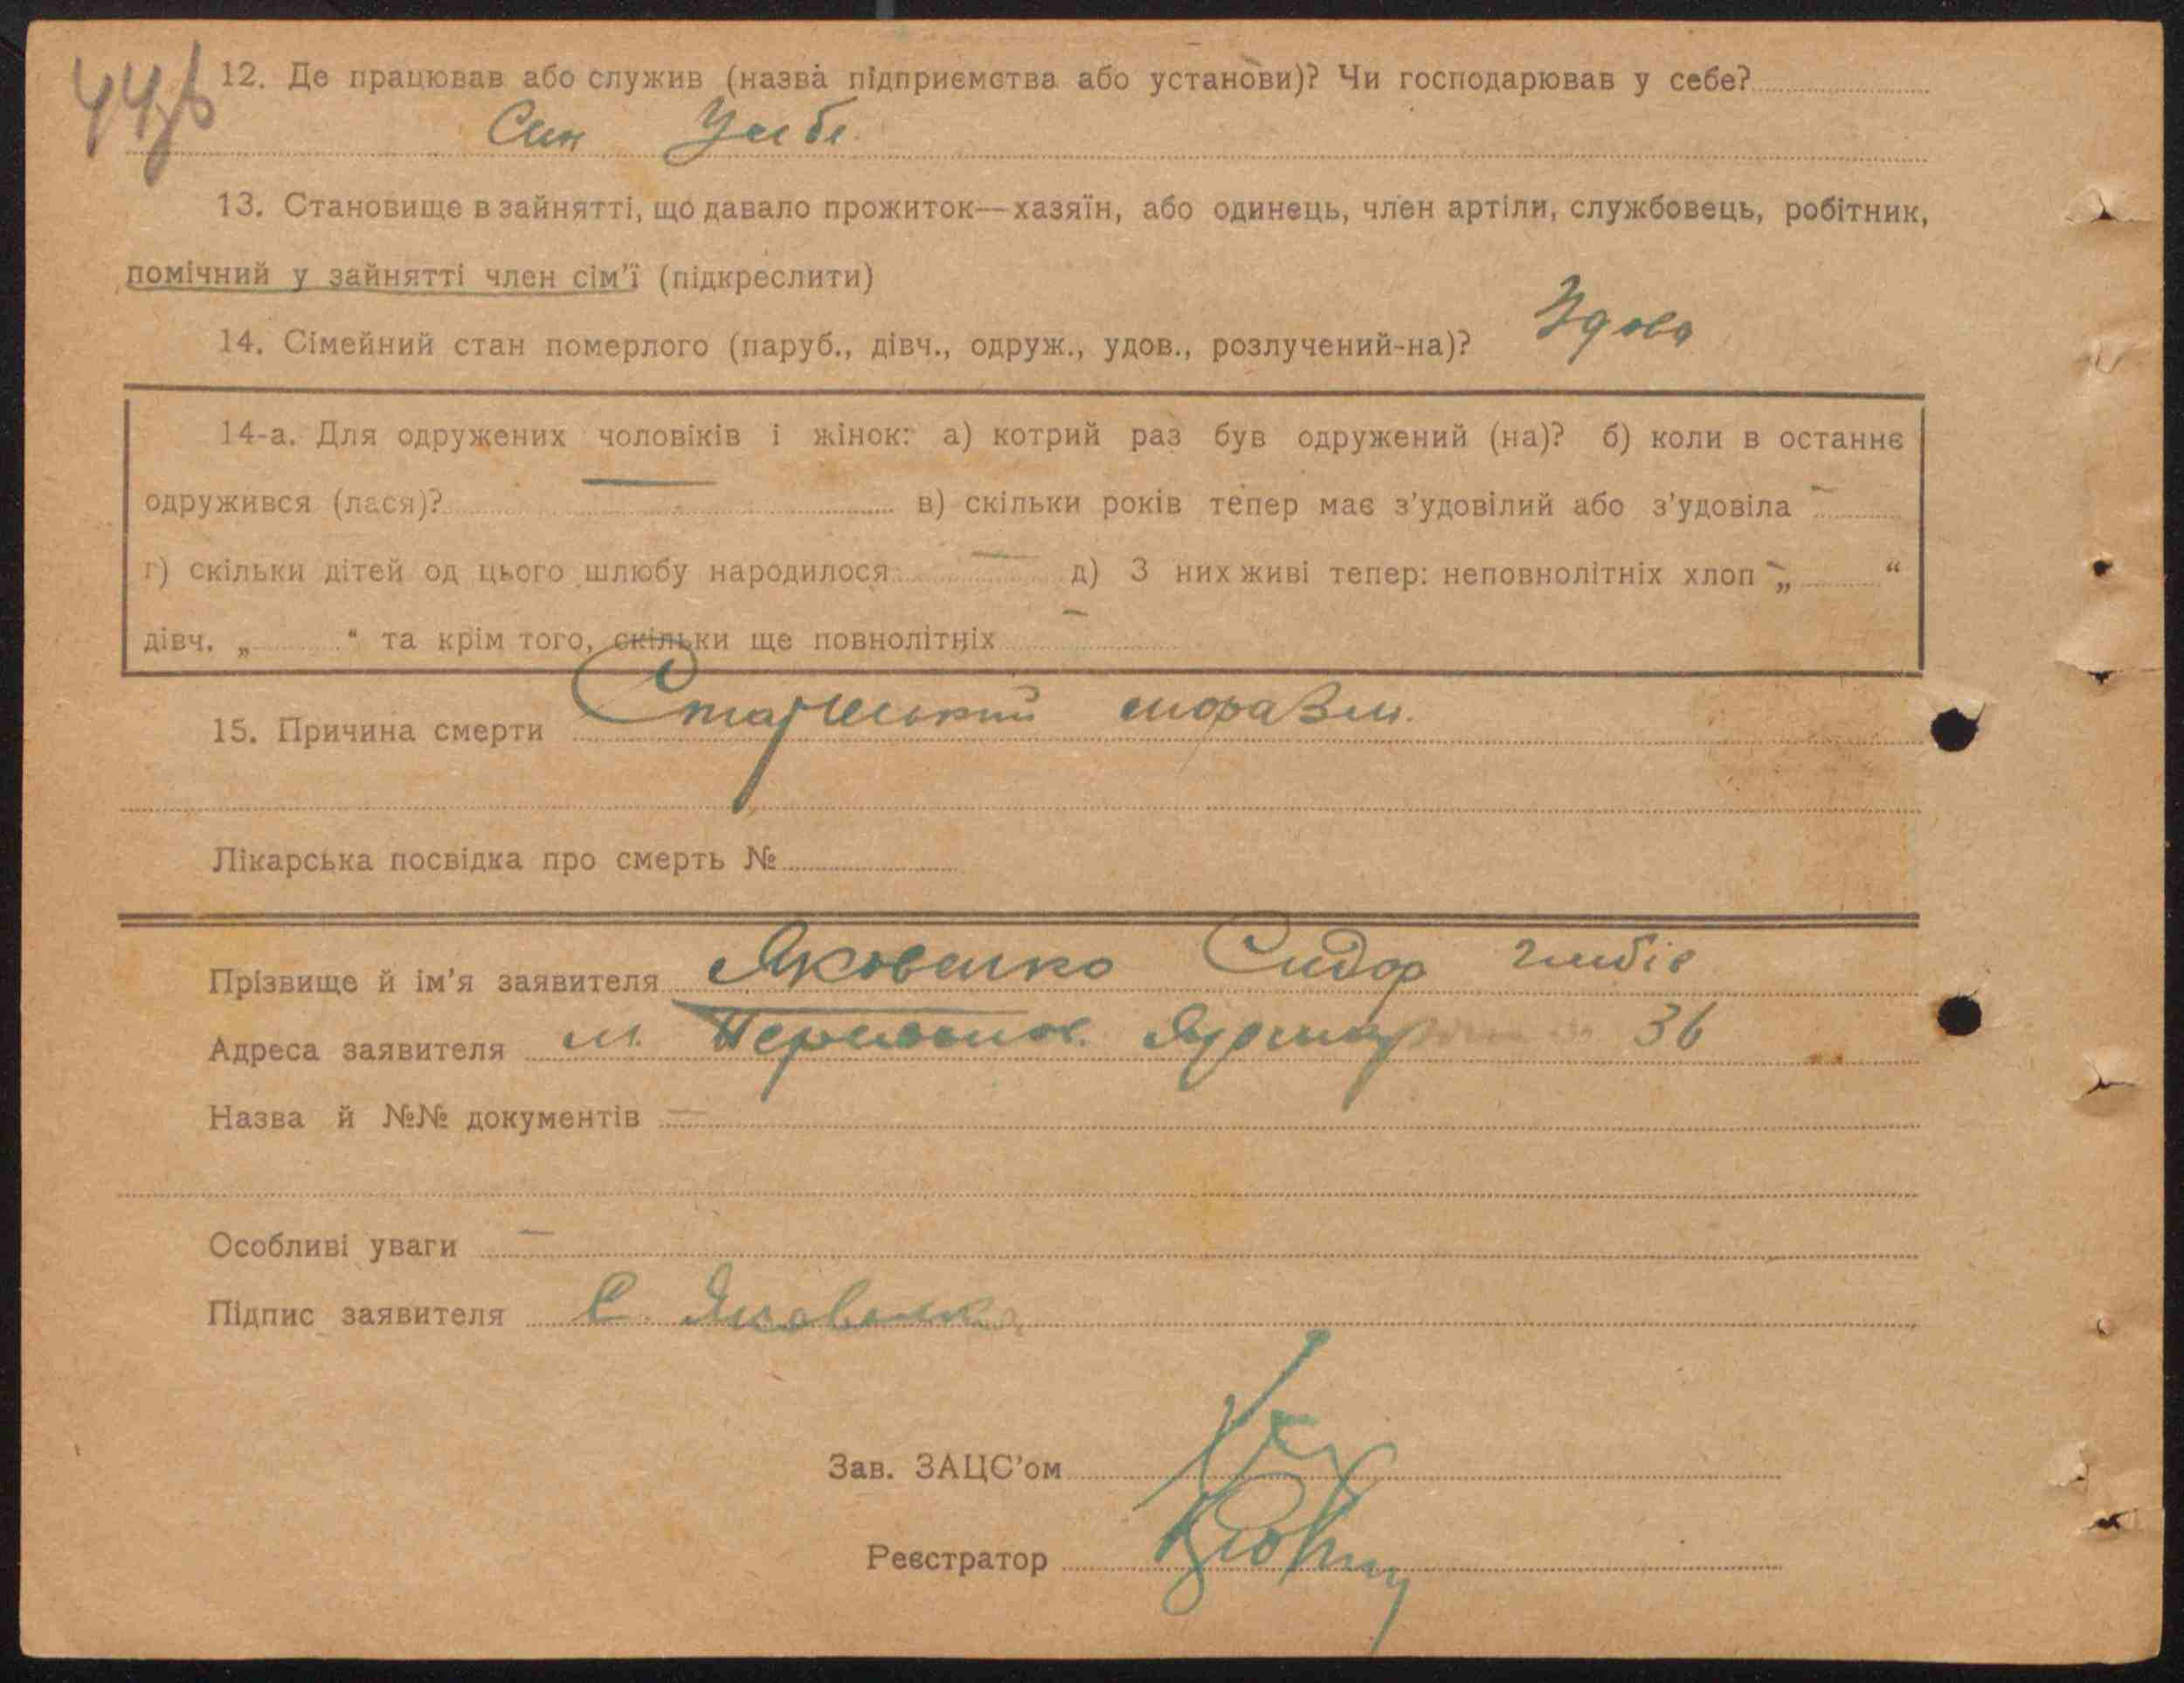 44
12. Де працював або служив (назва підприємства або установи)? Чи господарював у себе?
Син У себе
13. Становище в зайнятті, що давало прожиток—хазяїн, або одинець, член артіли, службовець, робітник,
помічний у зайнятті член сім'ї (підкреслити)
14. Сімейний стан померлого (паруб., дівч., одруж., удов., розлучений-на)? Удова
14-а. Для одружених чоловіків і жінок: а) котрий раз був одружений (на)? б) коли в останнє
одружився (лася)? — в) скільки років тепер має з'удовілий або з'удовіла —
г) скільки дітей од цього шлюбу народилося — д) З них живі тепер: неповнолітніх хлоп „ — “
дівч. „ “ та крім того, скільки ще повнолітніх —
15. Причина смерти Старческий маразм.
Лікарська посвідка про смерть №
Прізвище й ім'я заявителя Яковенко Сидор
Адреса заявителя м. 36
Назва й №№ документів —
Особливі уваги —
Підпис заявителя С. Яковенко
Зав. ЗАЦС'ом
Реєстратор